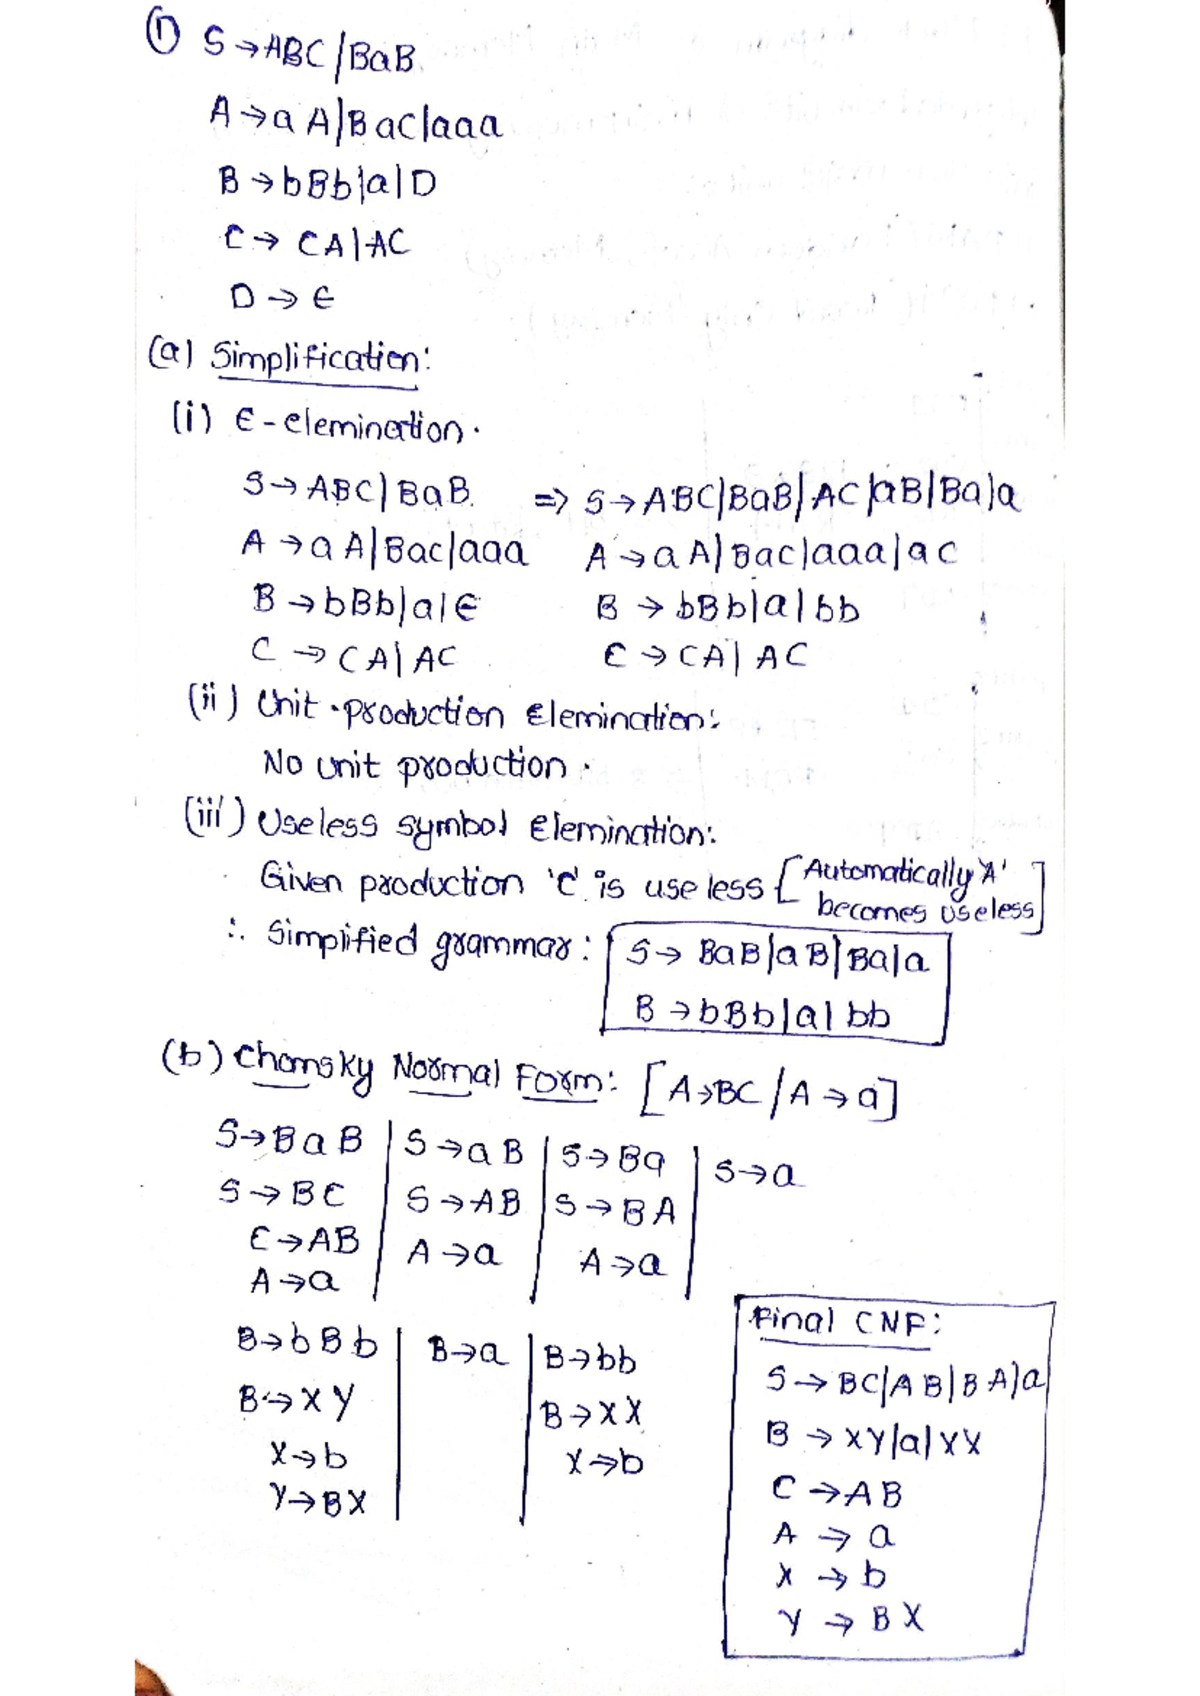 ① S → ABC | BaB
A → aA | BaC | aaa
B → bBb | a | D
C → CA | AC
D → ∈
(a) Simplification:
(i) ∈ - elemination.
S → ABC | BaB ⇒ S → ABC | BaB | AC | aB | Ba | a
A → aA | BaC | aaa A → aA | BaC | aaa | aC
B → bBb | a | ∈ B → bBb | a | bb
C → CA | AC C → CA | AC
(ii) Unit-production Elemination:
No unit production.
(iii) Useless symbol Elemination:
Given production 'C' is useless [Automatically 'A' becomes useless]
∴ Simplified grammar: S → BaB | aB | Ba | a
B → bBb | a | bb
(b) Chomsky Normal Form: [A → BC / A → a]
S → BaB | S → aB | S → Ba | S → a
S → BC | S → AB | S → BA
C → AB | A → a | A → a
A → a
B → bBb | B → a | B → bb
B → XY | B → XX
X → b | X → b
Y → BX
Final CNF:
S → BC | AB | BA | a
B → XY | a | XX
C → AB
A → a
X → b
Y → BX